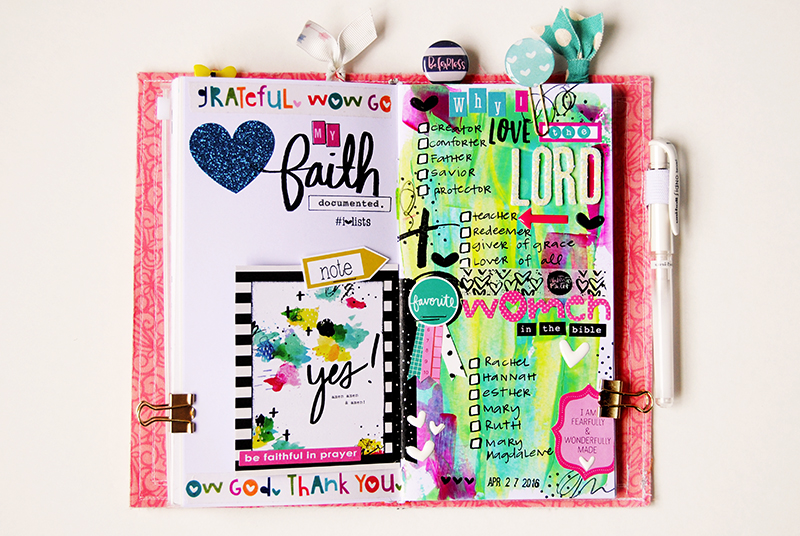 be fearless
GRATEFUL. WOW GO
MY
faith
documented.
#i♥lists
note
yes!
AMEN AMEN
& AMEN!
be faithful in prayer
OW GOD. THANK YOU.
Why I
LOVE the
LORD
CREATOR
COMFORTER
FATHER
SAVIOR
PROTECTOR
TEACHER
REDEEMER
giver of grace
Lover of all
favorite
women
in the bible
RACHEL
HANNAH
ESTHER
MARY
RUTH
MARY
Magdalene
I AM
FEARFULLY
&
WONDERFULLY
MADE
APR 27 2016